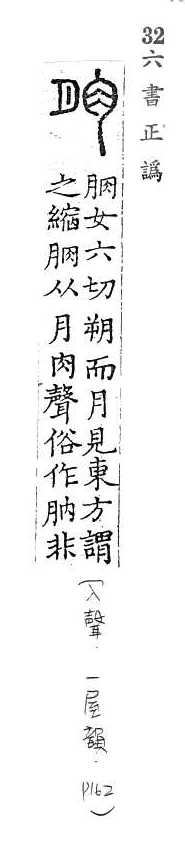 32六書正譌
朒
朒女六切朔而月見東方謂
之縮朒从月肉聲俗作肭非
(入聲.一屋韻.P162)